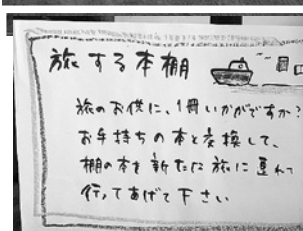 旅する本棚
旅のお供に、1冊いかがですか?
お手持ちの本と交換して、
棚の本を新たに旅に連れて
行ってあげて下さい